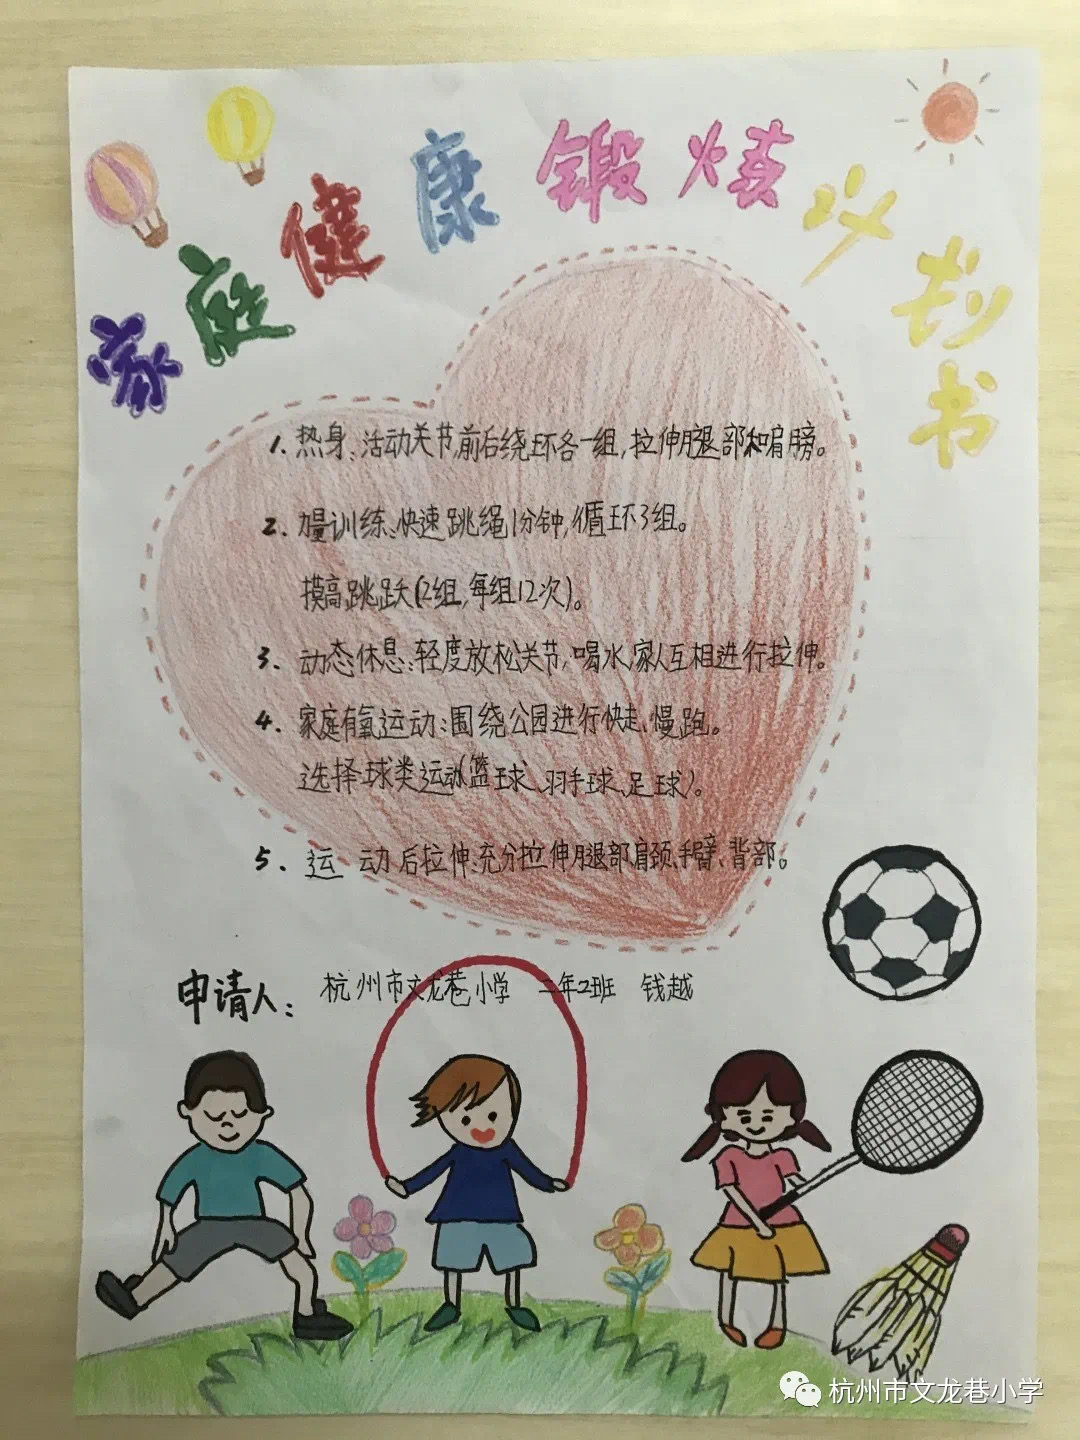 家庭健康锻炼计划书
1. 热身:活动关节,前后绕环各一组,拉伸腿部和肩膀。
2. 力量训练:快速跳绳1分钟,循环3组。
摸高跳跃(2组,每组12次)。
3. 动态休息:轻度放松关节,喝水,家人互相进行拉伸。
4. 家庭有氧运动:围绕公园进行快走、慢跑。
选择球类运动(篮球、羽毛球、足球)。
5. 运动后拉伸:充分拉伸腿部、肩颈、手臂、背部。
申请人: 杭州市文龙巷小学 二年2班 钱越
杭州市文龙巷小学